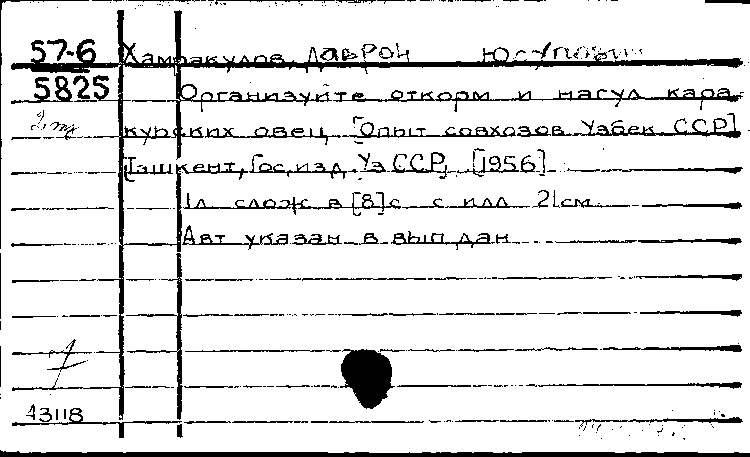 57-6 Хамракулов, Даврон Юсупович
5825 Организуйте откорм и нагул кара
курских овец [Опыт совхозов Узбек ССР]
Ташкент, Гос. изд. Уз ССР, [1956]
1л слож в [8]с с илл 21см
Авт указан в вып дан
43118